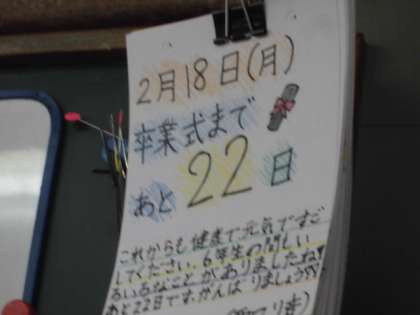 2月18日(月)
卒業式まで
あと22日
これからも健康で元気ですご
してください。6年生の間もい
ろいろなことがありましたね。
あと22日です。がんばりましょう。